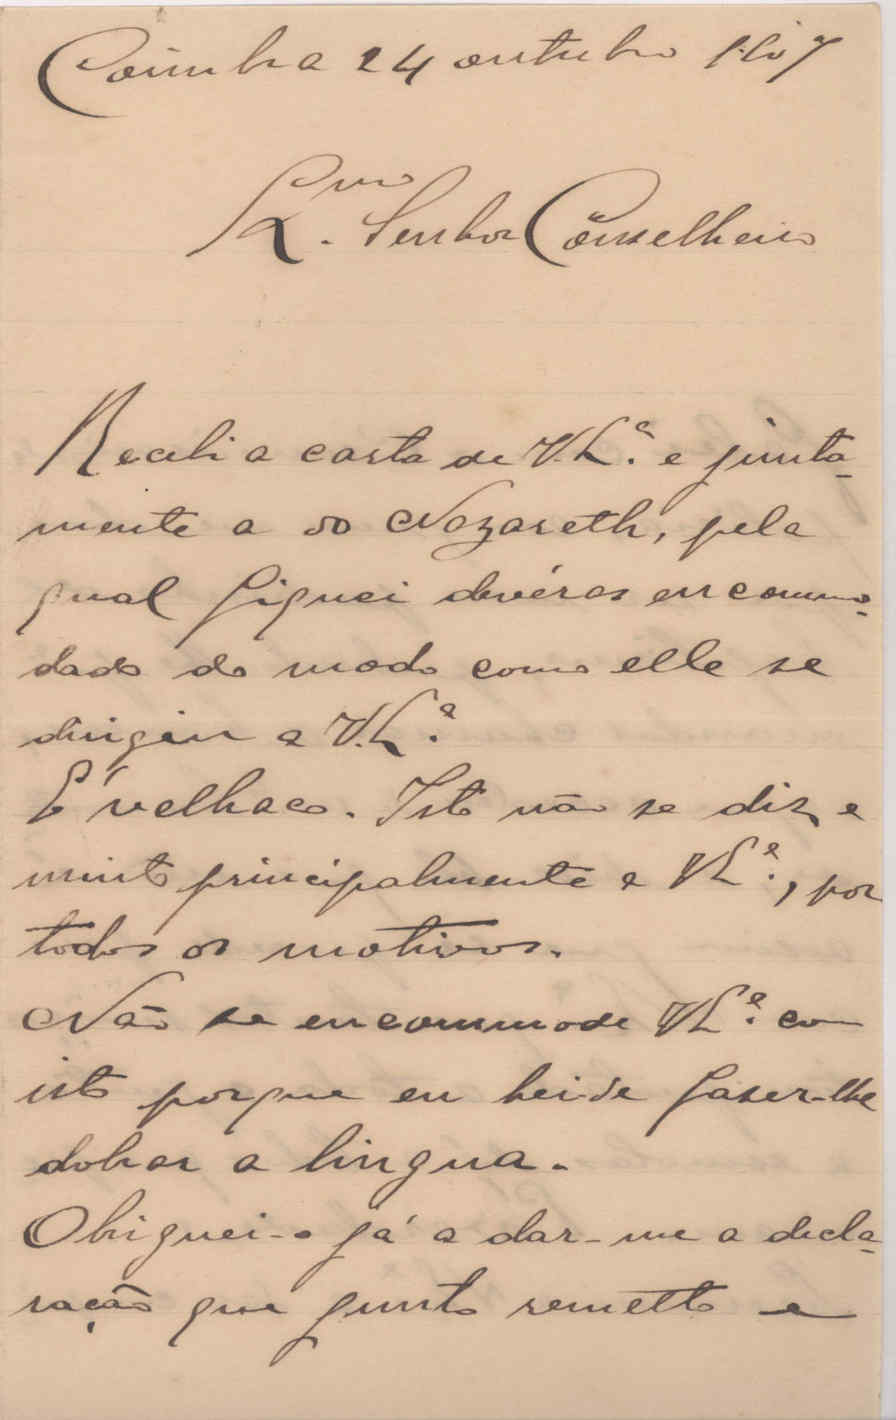 Coimbra 24 outubro 1907
Exmo. Senhor Conselheiro
Recebi a carta de V. Exª. e junta-
mente a do Nazareth, pela
qual fiquei devéras encommo-
dado do modo como elle se
dirigiu a V. Exª.
É velhaco. Isto não se diz, e
muito principalmente a V Exª., por
todos os motivos.
Não se encommode V Exª. co
isto porque eu hei-de faser-lhe
dobrar a lingua.
Obriguei-o já a dar-me a decla-
ração que junto remetto e